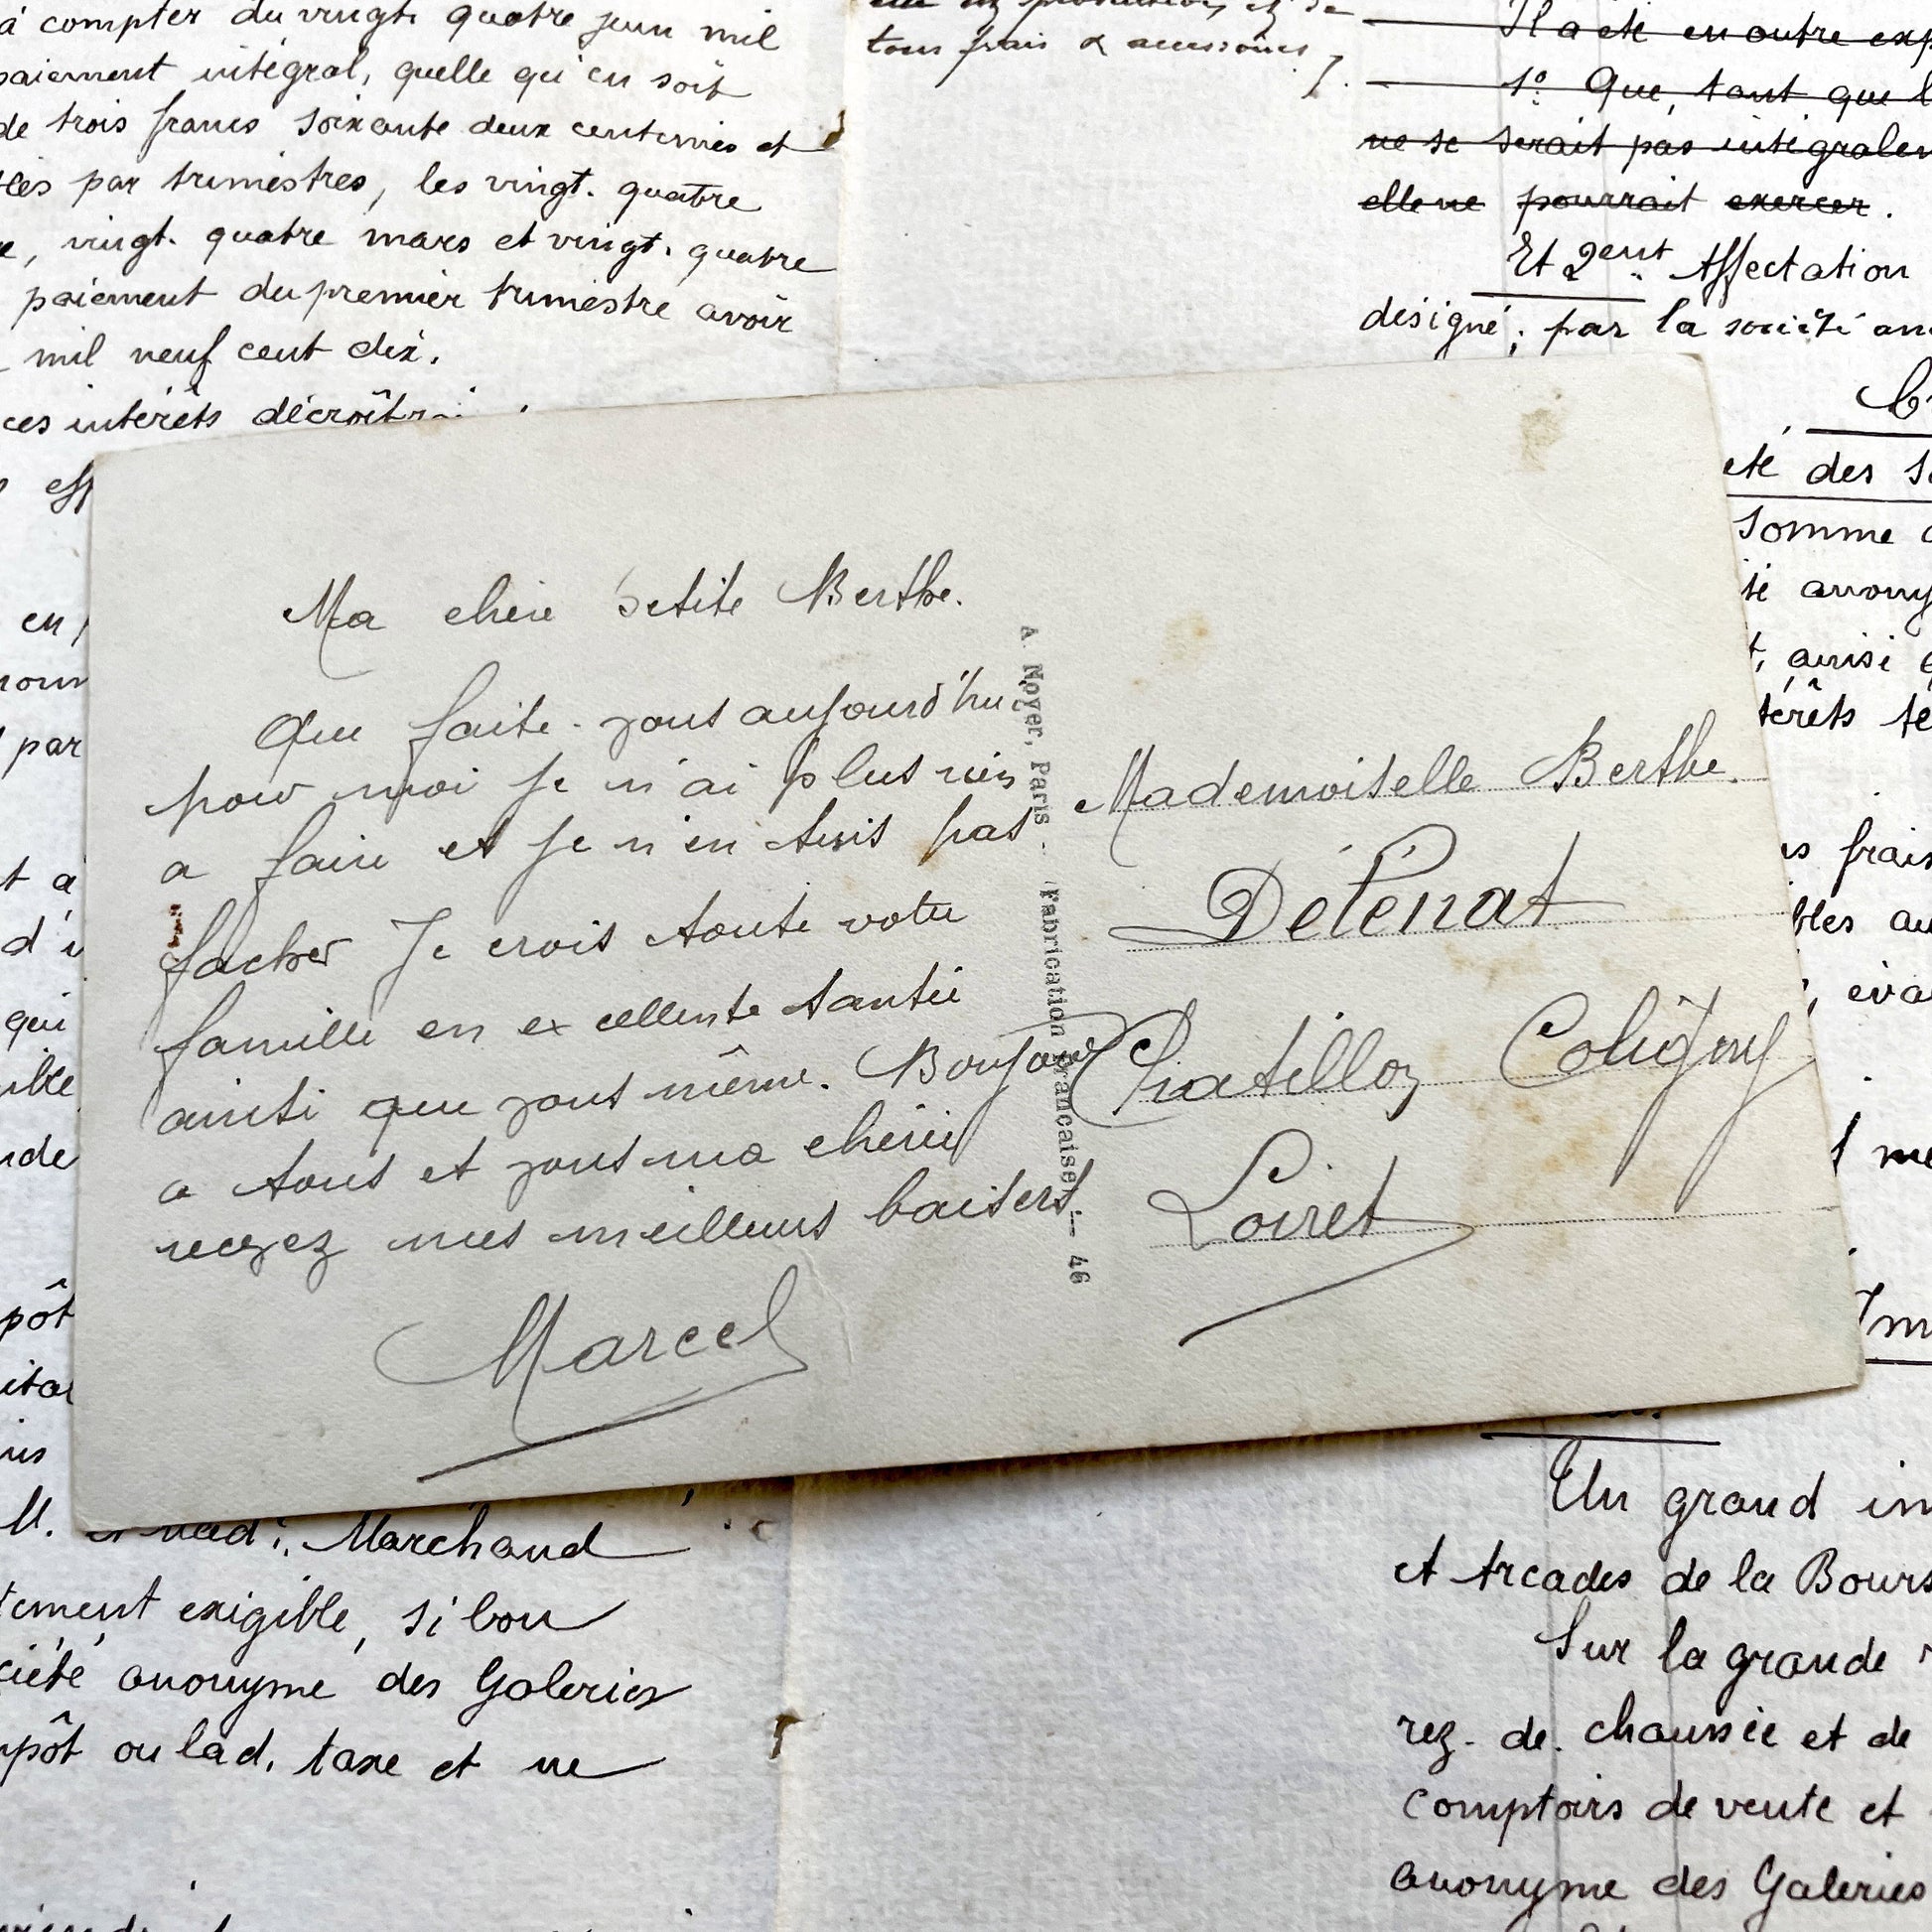 à compter du vingt. quatre juin mil
paiement intégral, quelle qu'en soit
de trois francs soixante deux centimes et
par trimestres, les vingt. quatre
vingt. quatre mars et vingt. quatre
paiement du premier trimestre avoir
mil neuf cent dix.
ces intérêts
tous frais & accessoires
Il a été en outre
1º Que, tant que
ne se serait pas
elle ne pourrait exercer.
Et 2ent Affectation
désigné, par la société
des
somme
ainsi
frais
Ma chère petite Berthe.
Que faite-vous aujourd'hui
pour moi je n'ai plus rien
a faire et je n'en suis pas
facher Je crois toute votre
famille en excellente santée
ainsi que vous même. Bonjour
a tous et vous ma chérie
recevez mes meilleurs baisers
Marcel
A. Noyer, Paris. - Fabrication Française. - 46
Mademoiselle Berthe
Délénat
Chatillon Coligny
Loiret
par
qui
M. et Mad. Marchand
exigible, si bon
anonyme des Galeries
ou lad. taxe et ne
Un grand
et Arcades de la
Sur la grande
rez-de-chaussée et de
comptoirs de vente et
anonyme des Galeries